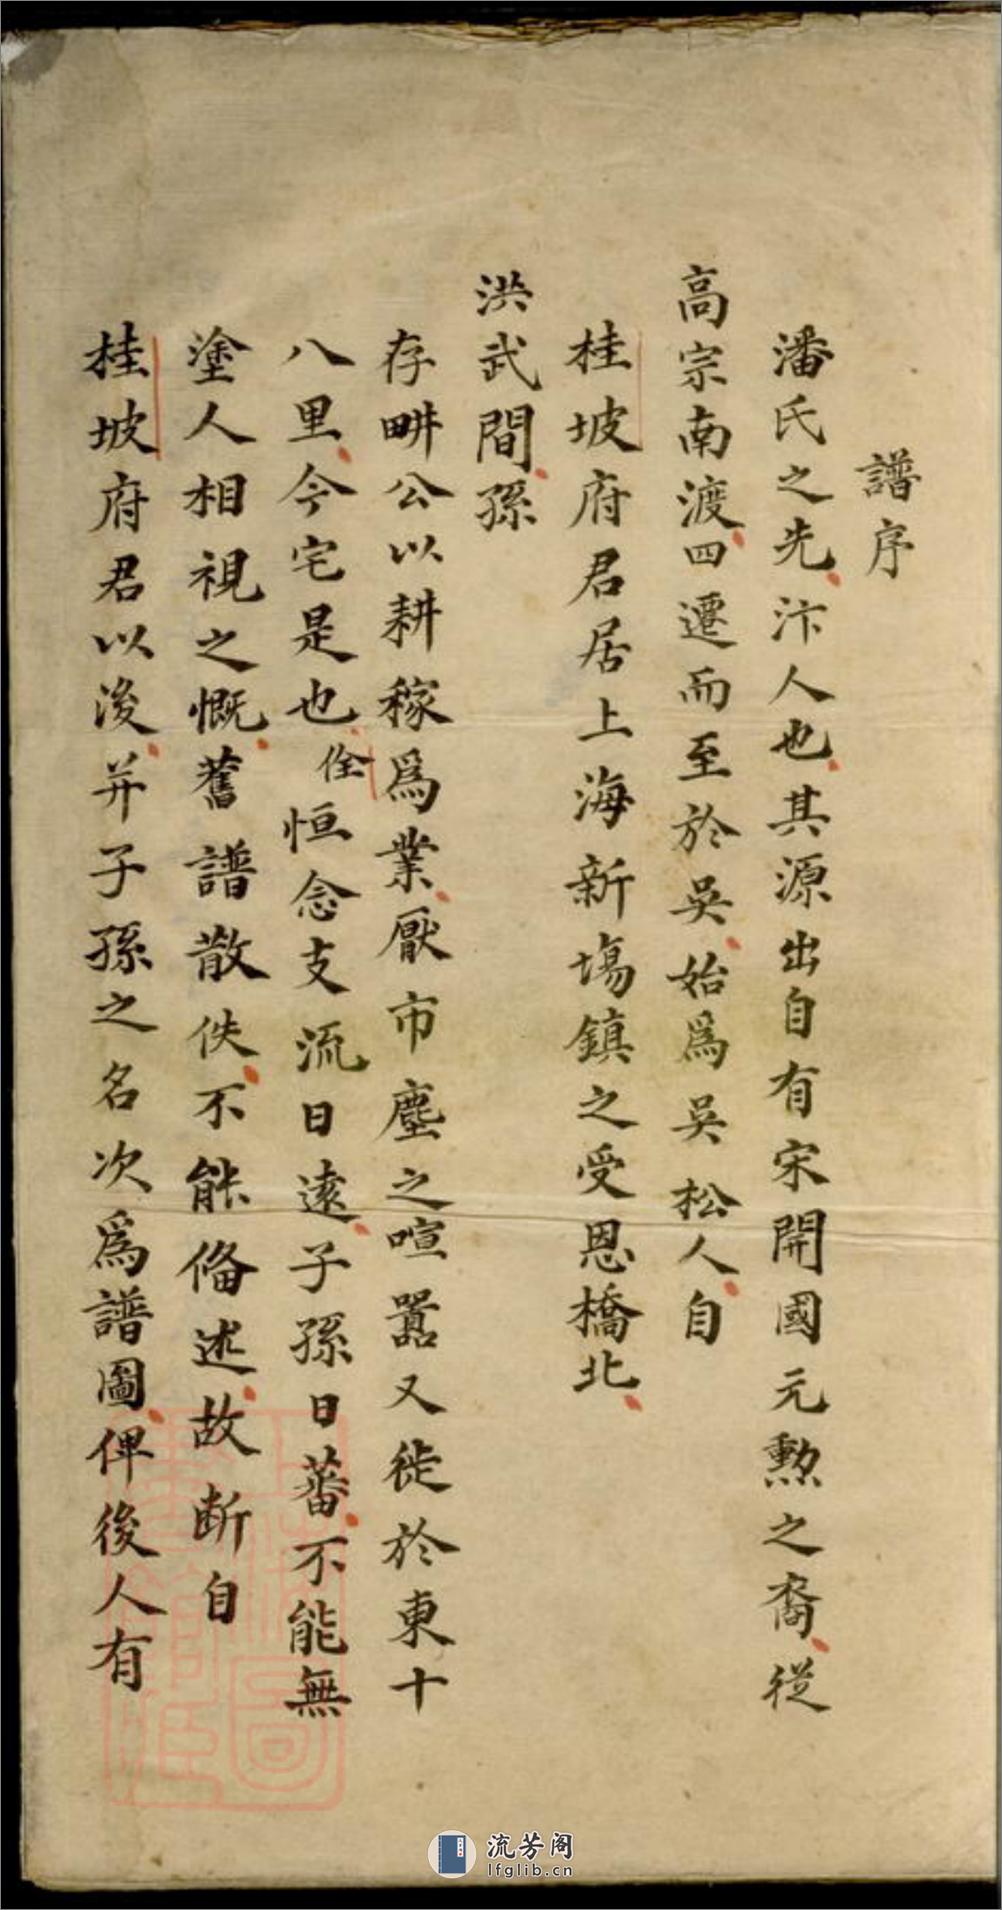 譜序
潘氏之先汴人也其源出自有宋開國元勲之裔從
高宗南渡四遷而至於吳始爲吳松人自
桂坡府君居上海新塲鎮之受恩橋北
洪武間孫
存畊公以耕稼爲業厭市塵之喧囂又徙於東十
八里今宅是也佺恒念支流日遠子孫日蕃不能無
塗人相視之慨舊譜散佚不能俻述故断自
桂坡府君以後并子孫之名次爲譜圖俾後人有
上海圖書館藏
流芳阁
lfglib.cn